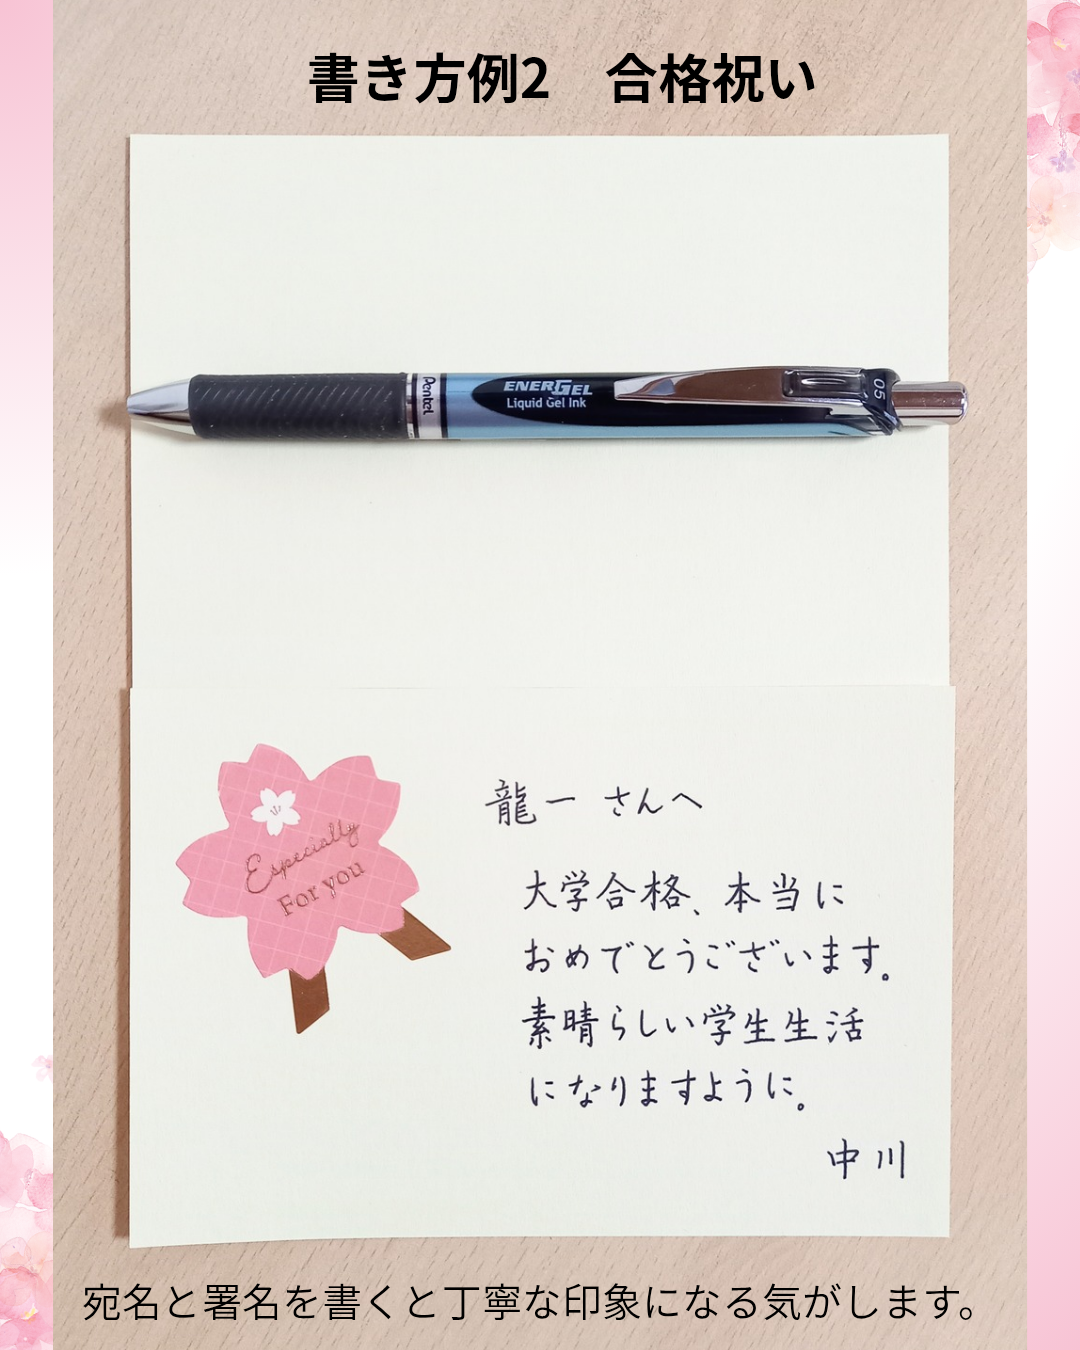 書き方例2　合格祝い
Pentel
ENERGEL
Liquid Gel Ink
05
Especially
For you
龍一 さんへ
大学合格、本当に
おめでとうございます。
素晴らしい学生生活
になりますように。
中川
宛名と署名を書くと丁寧な印象になる気がします。